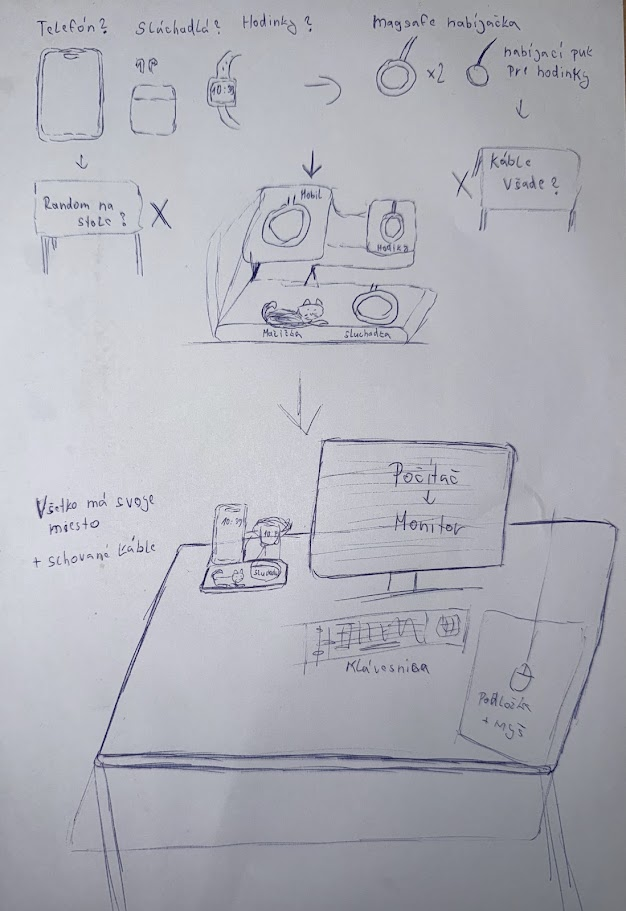 Telefón?
Slúchadlá?
Hodinky?
Magsafe nabíjačka
x2
nabíjací puk
pre hodinky
10:39
Random na
stole?
X
Káble
všade?
X
Mobil
Hodinky
Mačička
sluchadka
Všetko má svoje
miesto
+ schované káble
10:39
Počítač
Monitor
Klávesnica
Podložka
+ myš